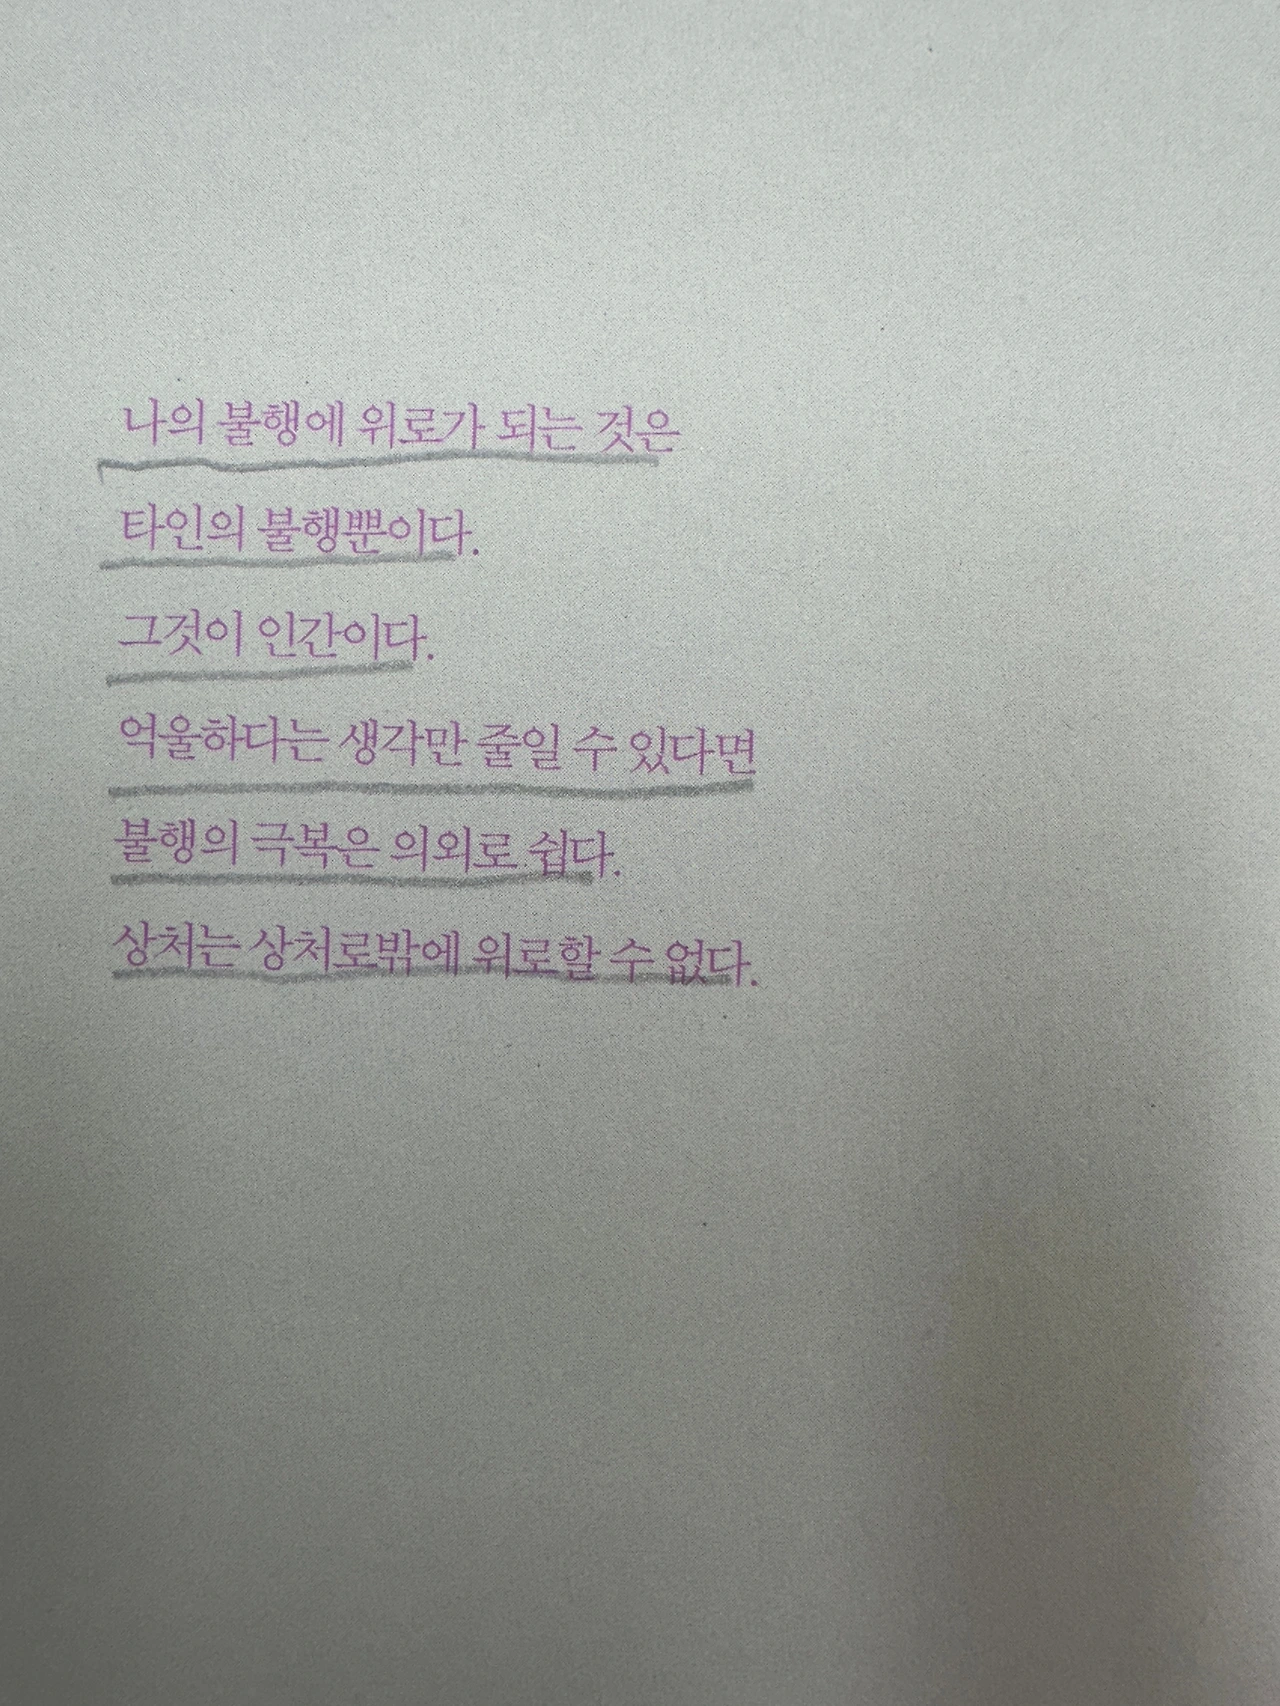 나의 불행에 위로가 되는 것은
타인의 불행뿐이다.
그것이 인간이다.
억울하다는 생각만 줄일 수 있다면
불행의 극복은 의외로 쉽다.
상처는 상처로밖에 위로할 수 없다.